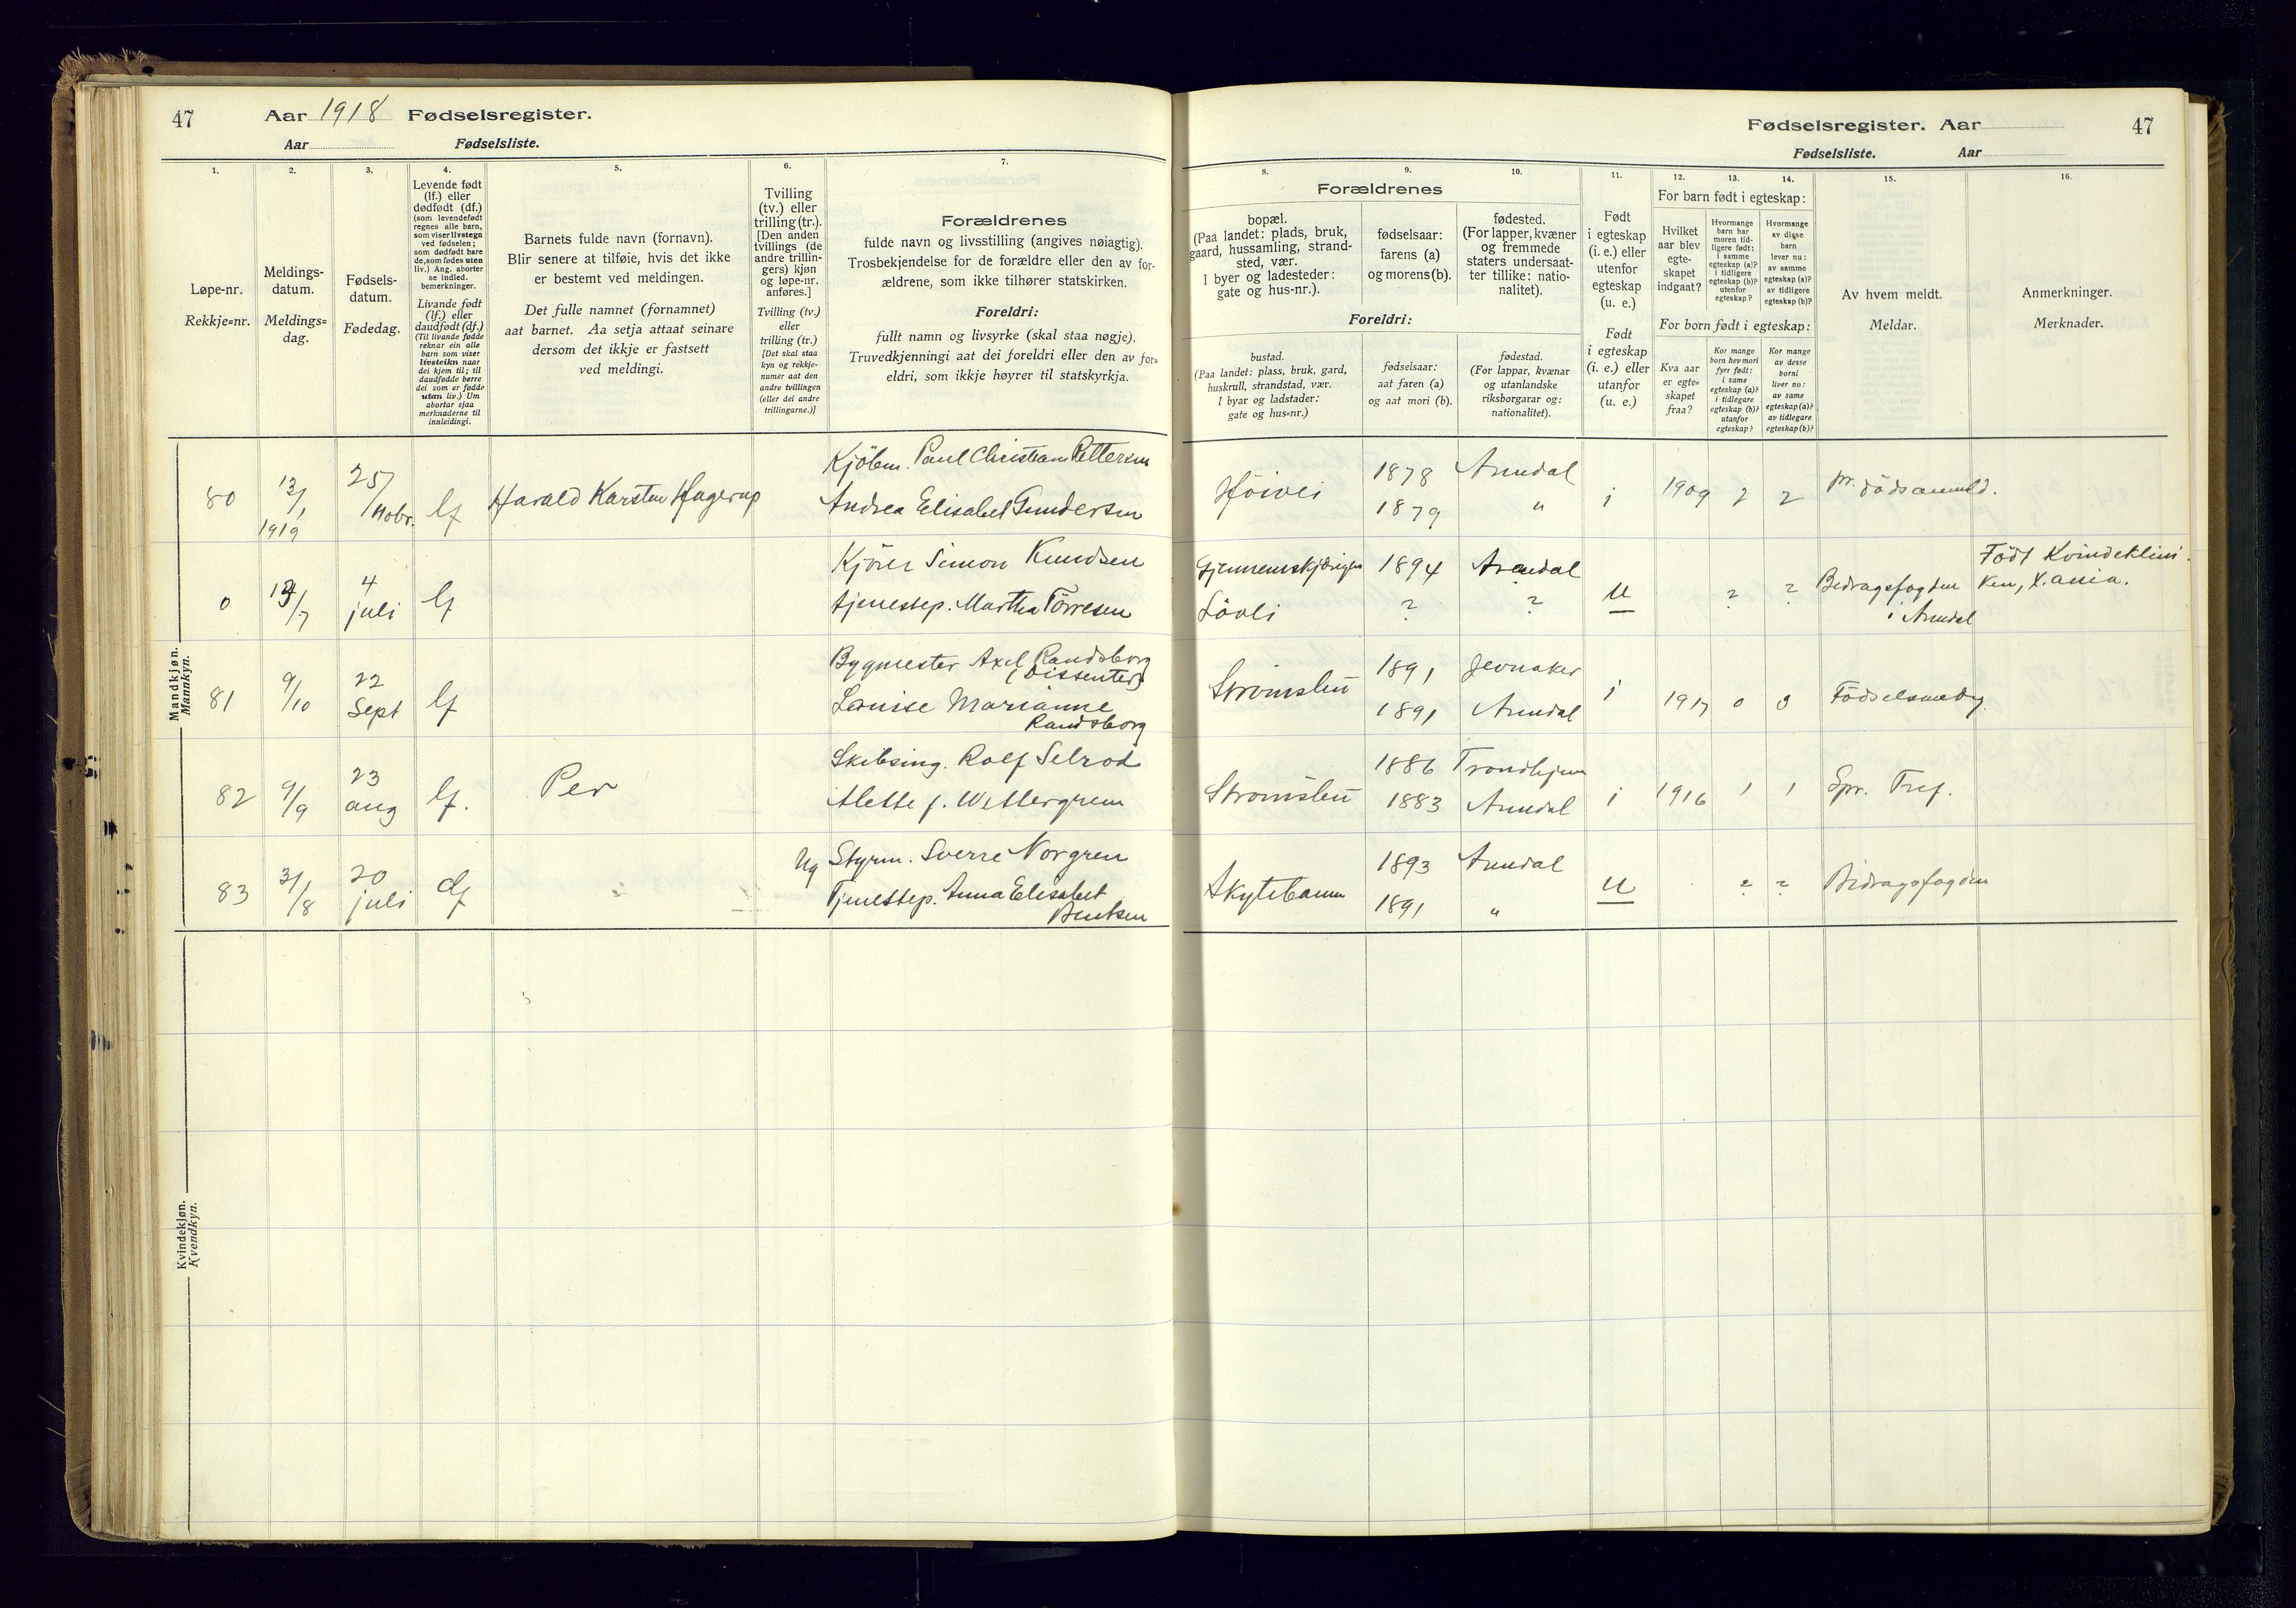 47
Aar 1918 Fødselsregister.
Aar Fødselsliste.
1.
2.
3.
4.
5.
6.
7.
Løpe-nr.
Rekkje=nr.
Meldings-
datum.
Meldings=
dag.
Fødsels-
datum.
Fødedag.
Levende født
(lf.) eller
dødfødt (df.)
(som levendefødt
regnes alle barn,
som viser livstegn
ved fødselen;
som dødfødt bare
de, som fødes uten
liv.) Ang. aborter
se indled.
bemerkninger.
Livande født
(lf.) eller
daudfødt (df.)
(Til livande fødde
reknar ein alle
barn som viser
livsteikn naar
dei kjem til; til
daudfødde berre
dei som er fødde
utan liv.) Um
abortar sjaa
merknaderne til
innleidingi.
Barnets fulde navn (fornavn).
Blir senere at tilføie, hvis det ikke
er bestemt ved meldingen.
Det fulle namnet (fornamnet)
aat barnet. Aa setja attaat seinare
dersom det ikkje er fastsett
ved meldingi.
Tvilling
(tv.) eller
trilling (tr.).
[Den anden
tvillings (de
andre trillin-
gers) kjøn
og løpe-nr.
anføres.]
Tvilling (tv.)
eller
trilling (tr.)
[Det skal staa
kyn og rekkje-
numer aat den
andre tvillingen
(eller dei andre
trillingarne.)]
Forældrenes
fulde navn og livsstilling (angives nøiagtig).
Trosbekjendelse for de forældre eller den av for-
ældrene, som ikke tilhører statskirken.
Foreldri:
fullt namn og livsyrke (skal staa nøgje).
Truvedkjenningi aat dei foreldri eller den av for=
eldri, som ikkje høyrer til statskyrkja.
Fødselsregister. Aar
47
Fødselsliste. Aar
8.
9.
10.
11.
12.
13.
14.
15.
16.
Forældrenes
bopæl.
(Paa landet: plads, bruk,
gaard, hussamling, strand-
sted, vær.
I byer og ladesteder:
gate og hus-nr.).
fødselsaar:
farens (a)
og morens (b).
fødested.
(For lapper, kvæner
og fremmede
staters undersaat-
ter tillike: natio-
nalitet).
Foreldri:
bustad.
(Paa landet: plass, bruk, gard,
huskrull, strandstad, vær.
I byar og ladstader:
gate og hus=nr.)
fødselsaar:
aat faren (a)
og aat mori (b).
fødestad.
(For lappar, kvænar
og utanlandske
riksborgarar og:
nationalitet).
Født
i egteskap
(i. e.) eller
utenfor
egteskap
(u. e.)
Født
i egteskap
(i. e.) eller
utanfor
(u. e.)
For barn født i egteskap:
Hvilket
aar blev
egte-
skapet
indgaat?
Hvormange
barn har
moren tid-
ligere født:
i samme
egteskap (a)?
i tidligere
egteskap (b)?
utenfor
egteskap?
Hvormange
av disse
barn
lever nu:
av samme
egteskap (a)?
av tidligere
egteskap (b)?
For born født i egteskap:
Kva aar
er egte=
skapet
fraa?
Kor mange
born hev mori
fyrr født:
i same
egteskap (a)?
i tidlegare
egteskap (b)?
utanfor
egteskap?
Kor mange
av desse
borni
liver no:
av same
egteskap (a)?
av tidlegare
egteskap (b)?
Av hvem meldt.
Meldar.
Anmerkninger.
Merknader.
Mandkjøn.
Mannkyn.
80 13/1 1919 25/Nobr. lf Harald Karsten Hagerup
Kjöbm. Paul Christian Pettersen
Andrea Elisabet Gundersen
Höivei 1878 Arendal i 1909 2 2
1879 "
0 /7 4 juli lf
Kjörer Simon Knudsen
tjenestep. Martha Törresen
1894 Arendal u ? ? Bidragsfogden
i Arendal
Lövli ? ?
Født Kvindeklini-
ken, X.ania.
81 9/10 22 Sept lf
Bygmester Axel Randsborg
(Dissenter)
Louise Marianne
Randsborg
Strömsbu 1891 Jevnaker i 1917 0 0
1891 Arendal
82 9/9 23 aug lf. Per
Skibsing. Rolf Selrod
Alette f. Wettergreen
Strömsbu 1886 Trondhjem i 1916 1 1
1883 Arendal
83 31/8 20 juli df
Ug Styrm. Sverre Norgren
Tjenestep. Anna Elisabet
Bentsen
1893 Arendal u ? ? Bidragsfogden
1891 "
Kvindekjøn.
Kvendkyn.